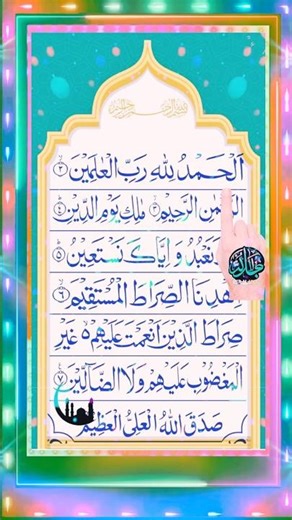 بسم الله الرحمن الرحيم
اَلْحَمْدُ لِلّٰهِ رَبِّ الْعٰلَمِيْنَ ۟ۙ۲
الرَّحْمٰنِ الرَّحِيْمِ ۟ۙ۳ مٰلِكِ يَوْمِ الدِّيْنِ ۟ؕ۴
نَعْبُدُ وَ اِيَّاكَ نَسْتَعِيْنُ ۟ؕ۵
اِهْدِنَا الصِّرَاطَ الْمُسْتَقِيْمَ ۟ۙ۶
صِرَاطَ الَّذِيْنَ اَنْعَمْتَ عَلَيْهِمْ ۙ۬ۥ غَيْرِ
الْمَغْضُوْبِ عَلَيْهِمْ وَلَا الضَّآلِّيْنَ ۟۠۷
صَدَقَ اللهُ الْعَلِيُّ الْعَظِيْمُ